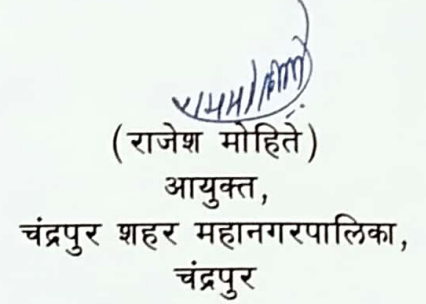 (राजेश मोहिते)
आयुक्त,
चंद्रपुर शहर महानगरपालिका,
चंद्रपुर